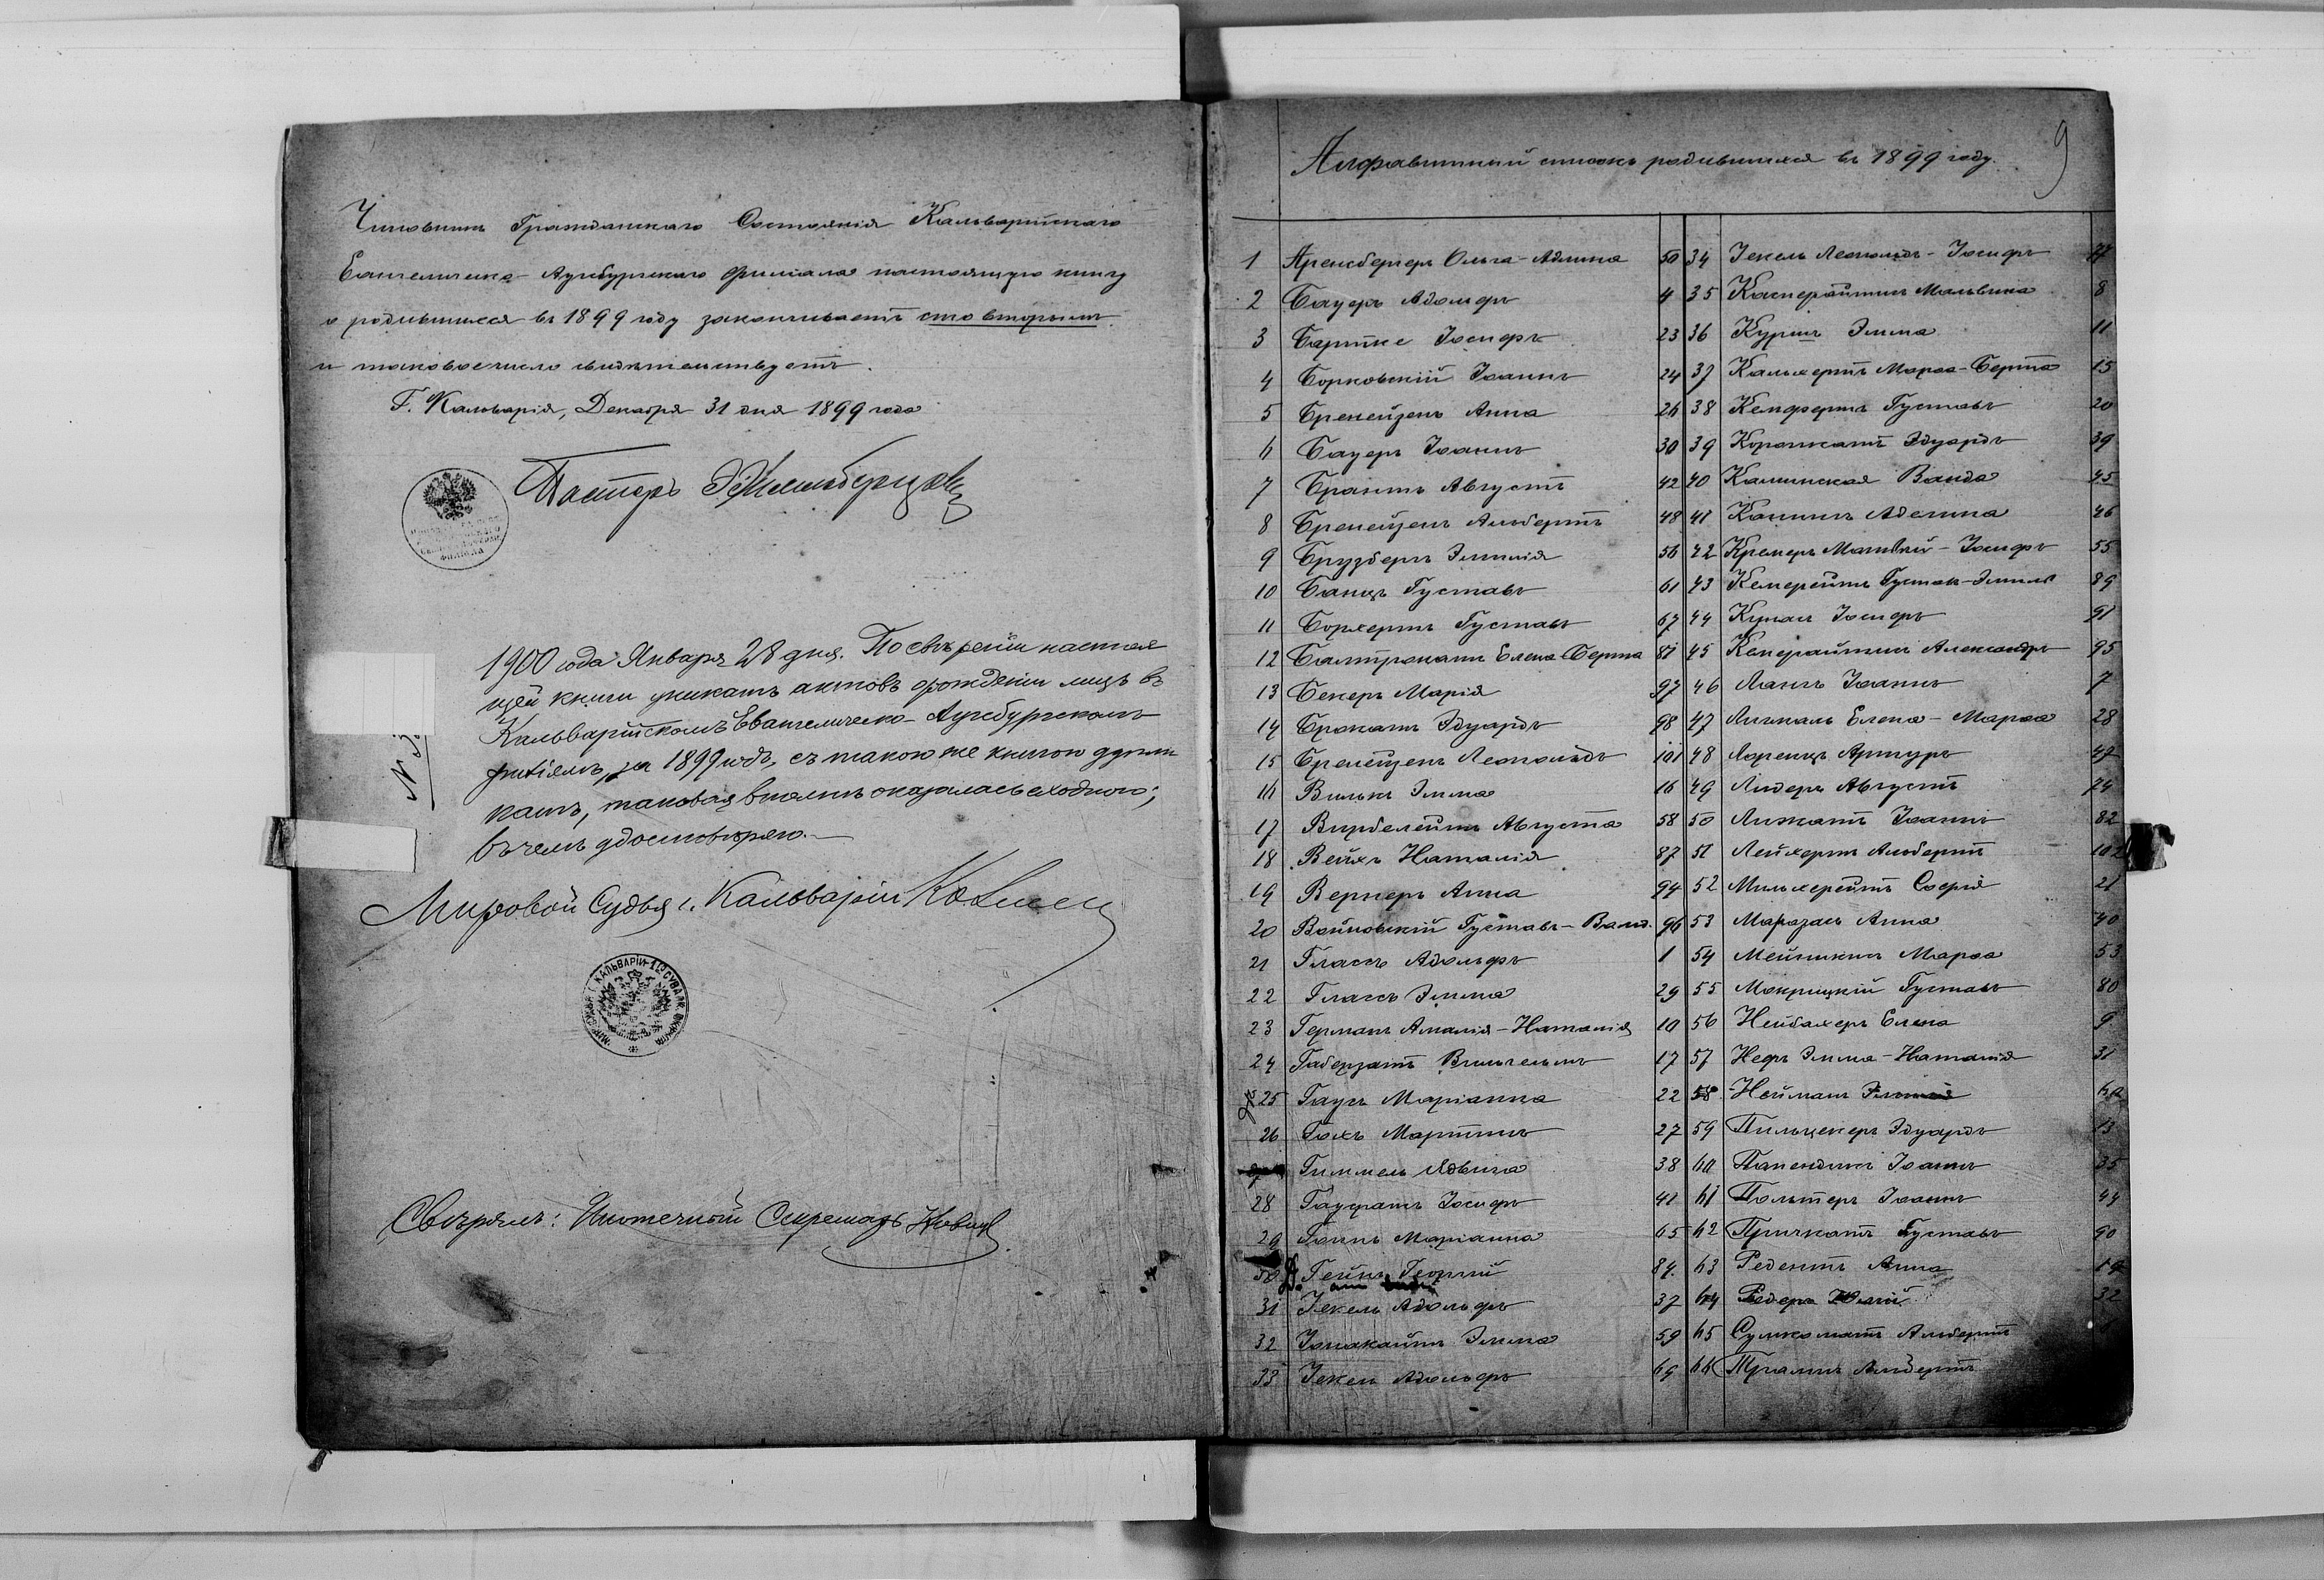 Чиновникъ Гражданскаго Состоянія Кальварійскаго
Евангелическо-Аугсбургскаго Филіала настоящую книгу
о родившихся въ 1899 году заканчиваетъ сто вторымъ
и таковое число свидѣтельствуетъ.
Г. Кальварія, Декабря 31 дня 1899 года
Пасторъ
ФИЛІАЛА
1900 года Января 28 дня. По свѣреніи настоя
щей книги уникатъ актовъ о рожденіи лицъ въ
Кальварійскомъ Евангелическо-Аугсбургскомъ
за 1899 годъ, съ такою же книгою дупли
катъ, таковая вполнѣ оказалась сходною;
въ чемъ удостовѣряю.
Мировой Судья г. Кальваріи
Свѣрялъ: Ипотечный Секретарь
9
Алфавитный списокъ родившихся въ 1899 году.
1 Аренсбергеръ Ольга-Адлина 50
2 Бауеръ Адольфъ 4
3 Бартке Іосифъ 23
4 Борковскій Іоаннъ 24
5 Бренейзенъ Анна 26
6 Бауеръ Іоаннъ 30
7 Брантъ Августъ 42
8 Бренейзенъ Альбертъ 48
9 Брузбергъ Эмилія 56
10 Банцъ Густавъ 61
11 Борхертъ Густавъ 67
12 Балтрокатъ Елена-Берта
13 Бекеръ Марія 97
14 Брокатъ Эдуардъ 98
15 Бренейзенъ Леопольдъ 101
16 Вилькъ Эмма 16
17 Вирбелейтъ Августа 58
18 Вейхъ Наталія 87
19 Вернеръ Анна 94
20 Войновскій Густавъ-Вальд. 96
21 Гласъ Адольфъ 1
22 Гласъ Эмма 29
23 Германъ Амалія-Наталія 10
24 Габерзатъ Вильгельмъ 17
25 Гаукъ Маріанна 22
26 Гохъ Мартинъ 27
Гиммель Ядвига 38
28 Гауфатъ Іосифъ 41
29 Гоппъ Маріанна 65
30 Гейнъ Георгій 84
31 Іекель Адольфъ 37
32 Іонакайтъ Эмма 59
33 Іекель Адольфъ 69
34 Іекель Леопольдъ-Іосифъ 77
35 Касперайтисъ Мальвина 8
36 Куршъ Эмма 11
37 Кальхертъ Марѳа-Берта 15
38 Кемфертъ Густавъ 20
39 Корошкатъ Эдуардъ 39
40 Калинская Ванда 45
41 Каминъ Аделина 46
42 Кремеръ Матвѣй-Іосифъ 55
43 Кемерейтъ Густавъ-Эмиль 89
44 Іосифъ 91
45 Кенерайтисъ Александръ 95
46 Лангъ Іоаннъ 7
47 Елена-Марѳа 28
48 Лоренцъ Артуръ 49
49 Лидеръ Августъ
50 Лижатъ Іоаннъ 82
51 Лейхертъ Альбертъ 102
52 Мильхерейтъ Софія 21
53 Марозасъ Анна 40
54 Марѳа 53
55 Мокрицкій Густавъ 80
56 Нейбахеръ Елена 9
57 Нефъ Эмма-Наталія 31
58 Нейманъ
59 Пильцекеръ Эдуардъ 13
60 Папендикъ Іоаннъ 35
61 Польтеръ Іоаннъ 44
62 Причкатъ Густавъ 90
63 Редентъ Анна
64 Редеръ Юлій 32
65 Альбертъ
66 Альбертъ